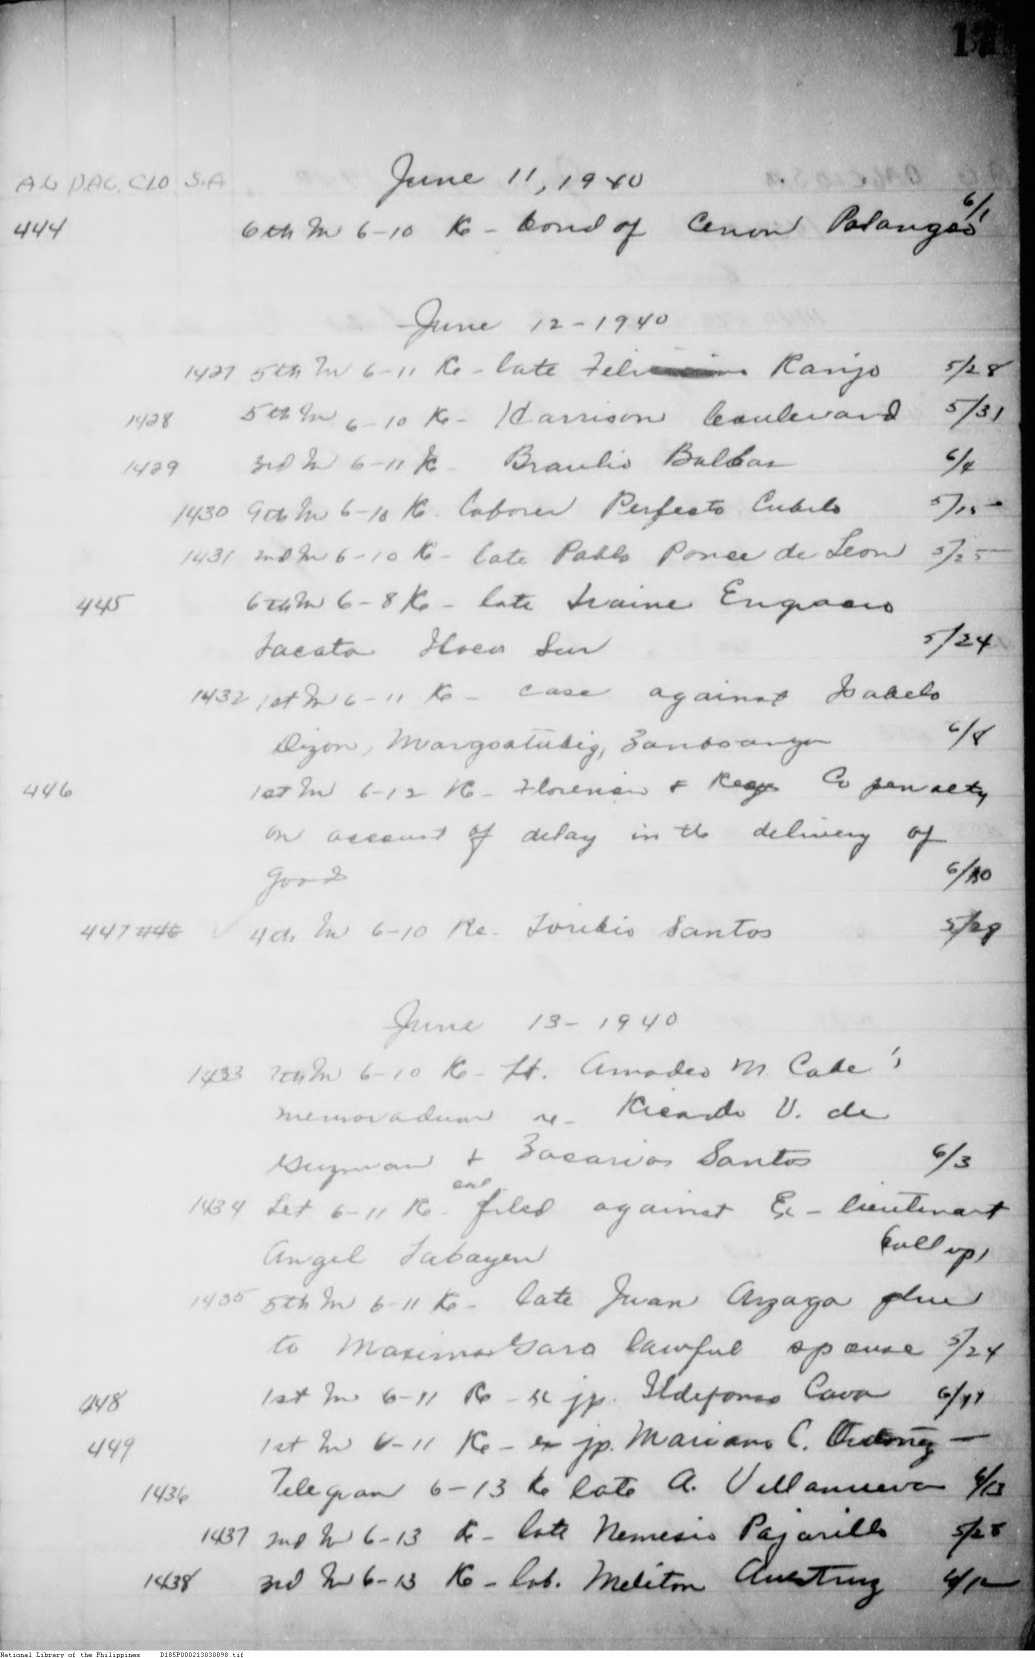 17
A.G D.A.C. CLO S.A June 11, 1940
444 6th In 6-10 Re - bond of Cenon Palangeo 6/1
June 12 - 1940
1427 5th In 6-11 Re - late Ranijo 5/28
1428 5th In 6-10 Re - Harrison boulevard 5/31
1429 3rd In 6-11 Re Braulio Balbas 6/4
1430 9th In 6-10 Re. laborer Perfecto Cubelo 5/15
1431 2nd In 6-10 Re - late Pablo Ponce de Leon 5/25
445 6th In 6-8 Re - late
Ilocos Sur 5/24
1432 1st In 6-11 Re - case against Isabelo
Dizon, Margosatubig, Zamboanga 6/8
446 1st In 6-12 Re - & Co penalty
on account of delay in the delivery of
goods 6/10
447 446 4th In 6-10 Re. Toribio Santos 5/29
June 13 - 1940
1433 7th In 6-10 Re - Lt. Amadeo M. Cabe's
memoradum re - Ricardo V. de
Guzman & Zacarias Santos 6/3
1434 Let 6-11 Re case filed against Ex - lieutenant
Angel Tabayen
1435 5th In 6-11 Re - late Juan Arzaga
to Maxima Garo lawful spouse 5/24
448 1st In 6-11 Re - ex jp. Ildefonso Cava 6/11
449 1st In 6-11 Re - ex jp. Mariano C. Ordoñez -
1436 Telegram 6-13 Re late A. Villanueva 6/13
1437 2nd In 6-13 Re - late Nemesio Pajarillo 5/28
1438 3rd In 6-13 Re - lab. Meliton 6/12
National Library of the Philippines D185P000213030098.tif